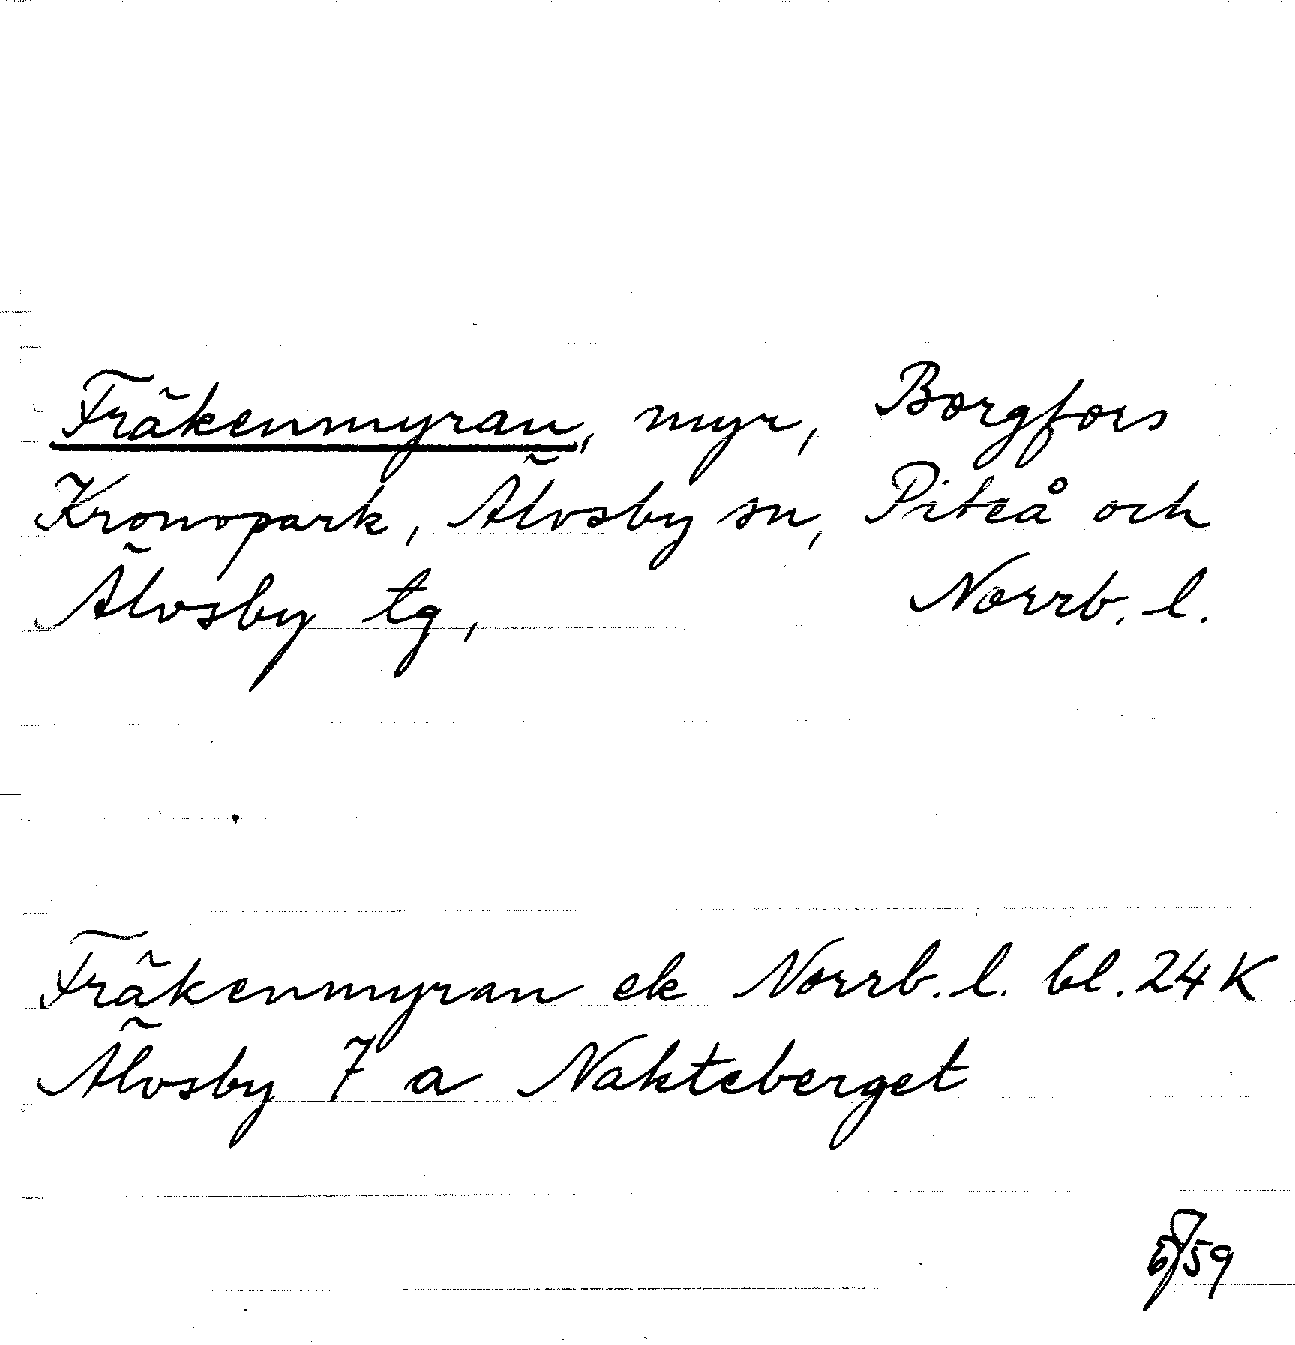 Fräkenmyran, myr, Borgfors
Kronopark, Älvsby sn, Piteå och
Älvsby tg, Norrb. l.
Fräkenmyran ek Norrb. l. bl. 24 K
Älvsby 7 a Nakteberget
59